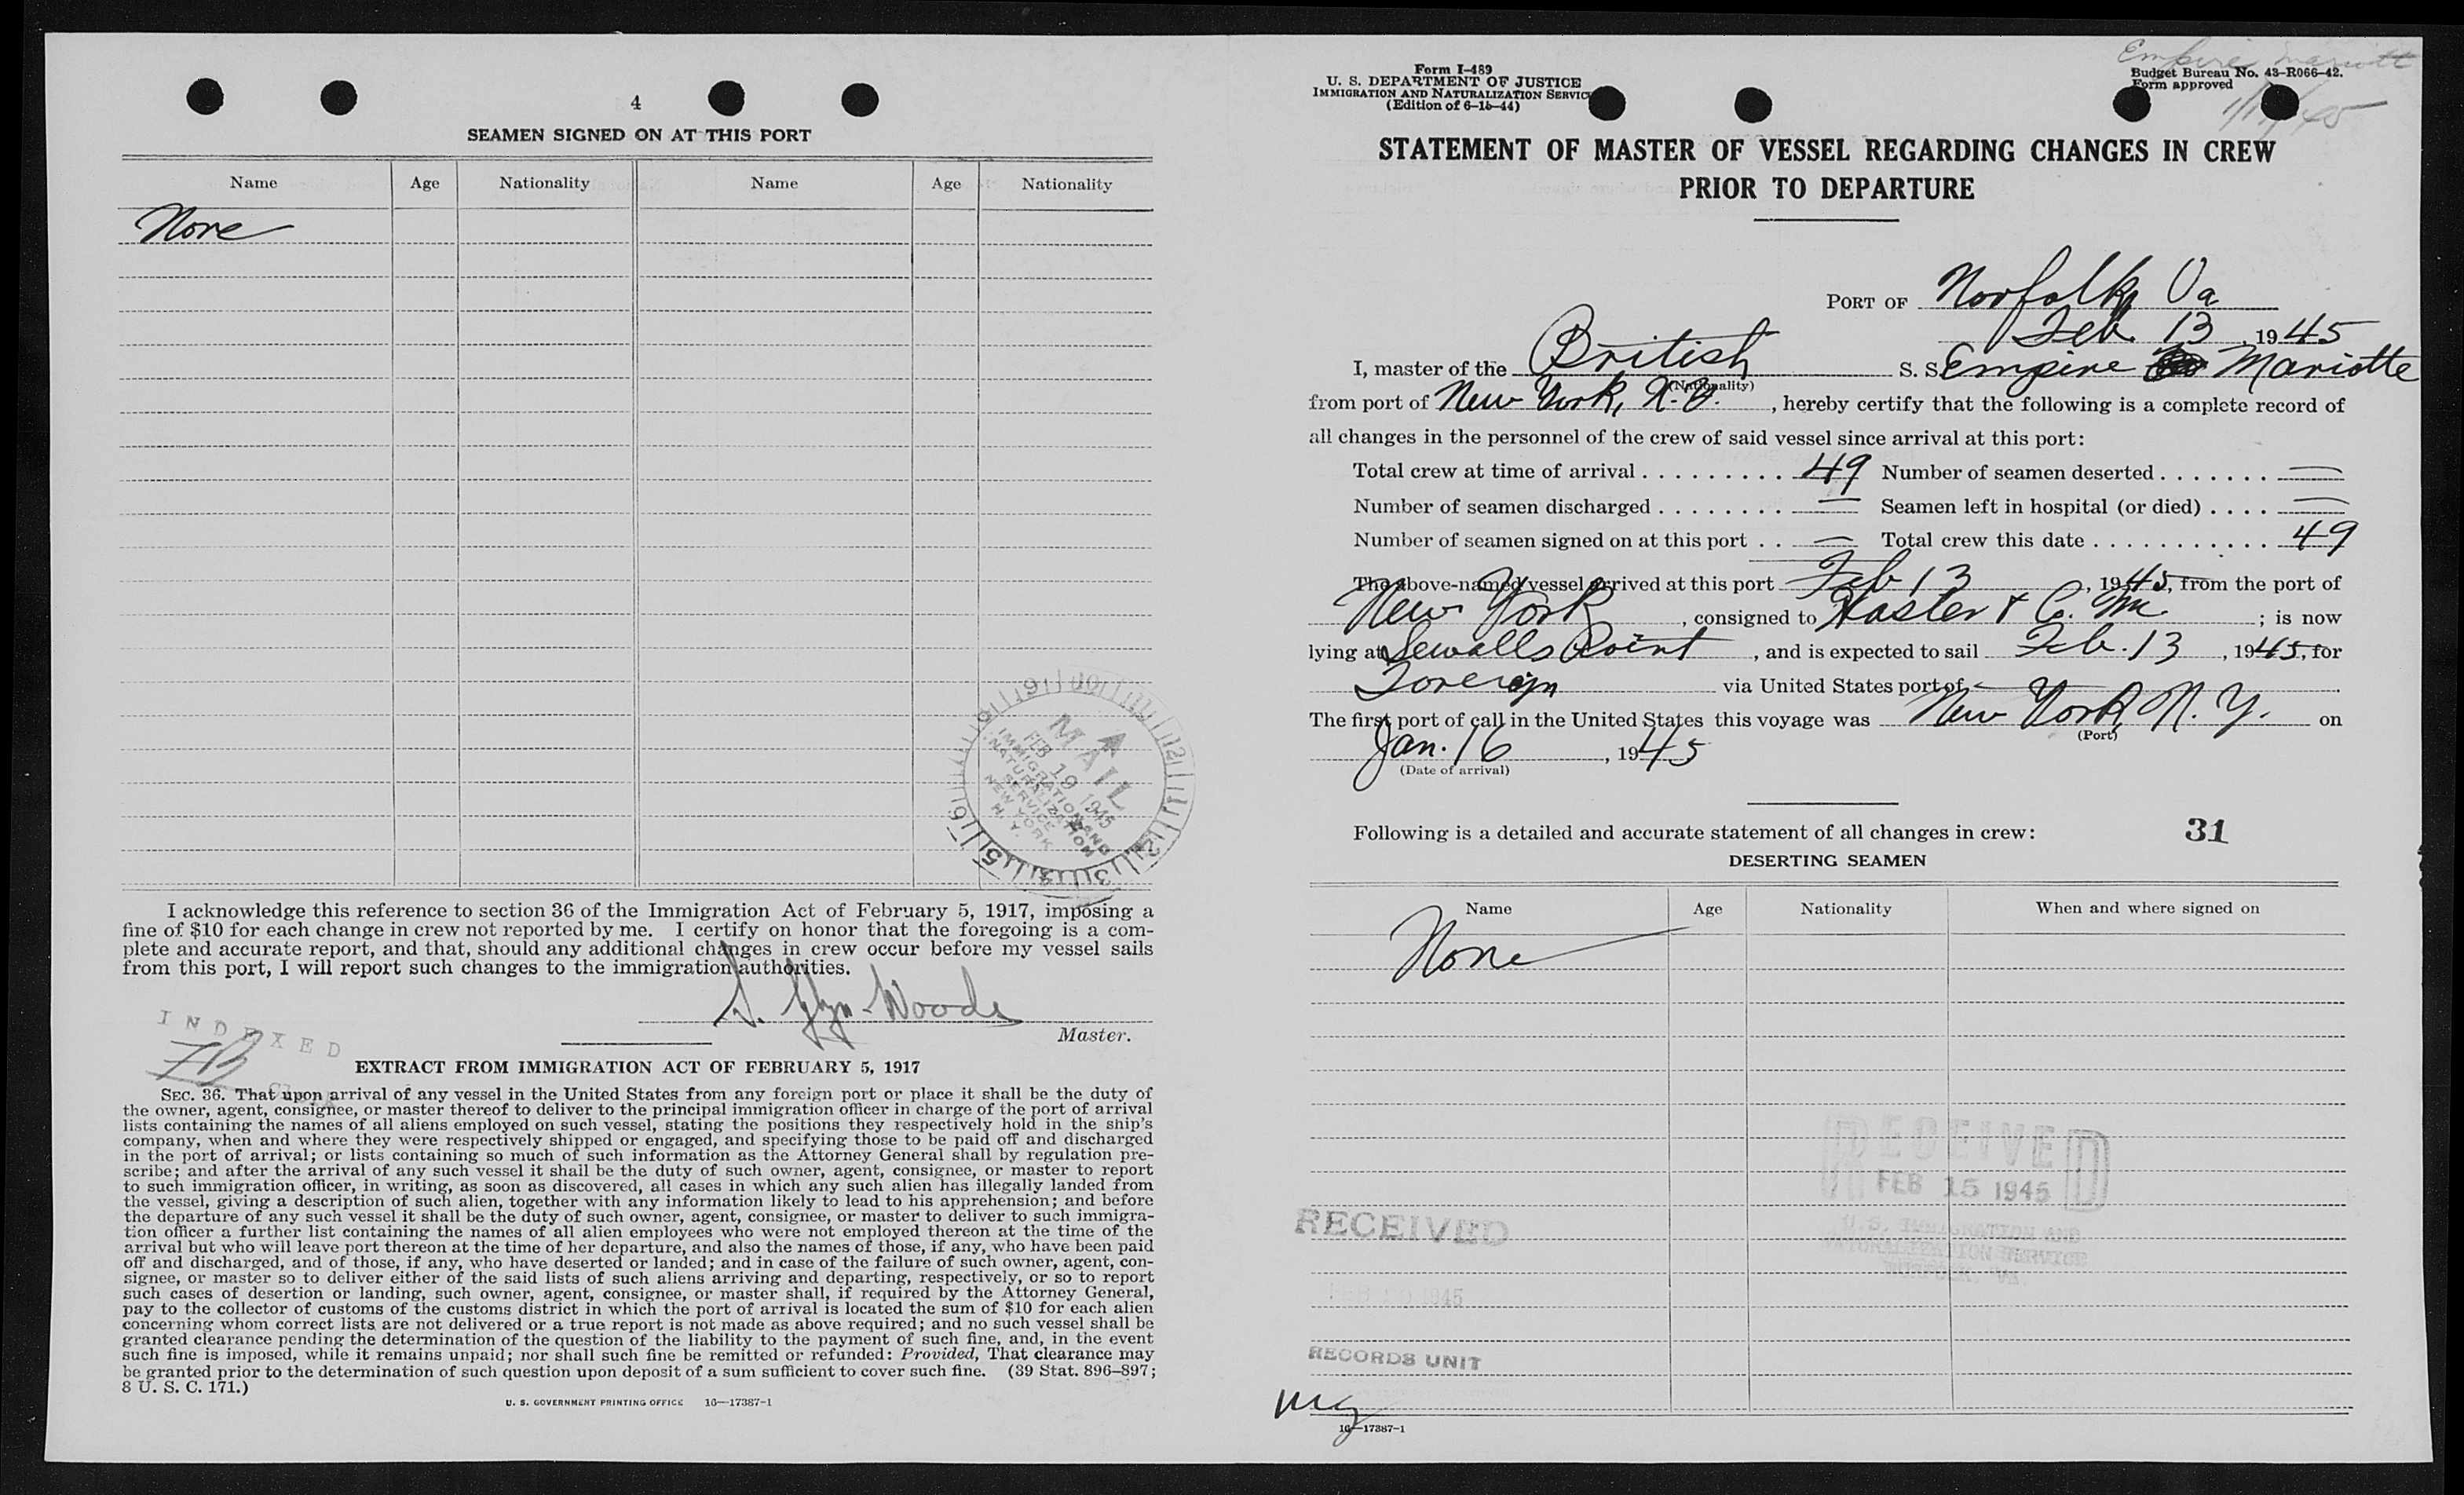 4
SEAMEN SIGNED ON AT THIS PORT
Name Age Nationality Name Age Nationality
None
MAIL
FEB 19 1945
IMMIGRATION AND
NATURALIZATION
SERVICE
NEW YORK
N. Y.
I acknowledge this reference to section 36 of the Immigration Act of February 5, 1917, imposing a
fine of $10 for each change in crew not reported by me. I certify on honor that the foregoing is a com-
plete and accurate report, and that, should any additional changes in crew occur before my vessel sails
from this port, I will report such changes to the immigration authorities.
S. Glyn-Woods
Master.
INDEXED
EXTRACT FROM IMMIGRATION ACT OF FEBRUARY 5, 1917
SEC. 36. That upon arrival of any vessel in the United States from any foreign port or place it shall be the duty of
the owner, agent, consignee, or master thereof to deliver to the principal immigration officer in charge of the port of arrival
lists containing the names of all aliens employed on such vessel, stating the positions they respectively hold in the ship's
company, when and where they were respectively shipped or engaged, and specifying those to be paid off and discharged
in the port of arrival; or lists containing so much of such information as the Attorney General shall by regulation pre-
scribe; and after the arrival of any such vessel it shall be the duty of such owner, agent, consignee, or master to report
to such immigration officer, in writing, as soon as discovered, all cases in which any such alien has illegally landed from
the vessel, giving a description of such alien, together with any information likely to lead to his apprehension; and before
the departure of any such vessel it shall be the duty of such owner, agent, consignee, or master to deliver to such immigra-
tion officer a further list containing the names of all alien employees who were not employed thereon at the time of the
arrival but who will leave port thereon at the time of her departure, and also the names of those, if any, who have been paid
off and discharged, and of those, if any, who have deserted or landed; and in case of the failure of such owner, agent, con-
signee, or master so to deliver either of the said lists of such aliens arriving and departing, respectively, or so to report
such cases of desertion or landing, such owner, agent, consignee, or master shall, if required by the Attorney General,
pay to the collector of customs of the customs district in which the port of arrival is located the sum of $10 for each alien
concerning whom correct lists are not delivered or a true report is not made as above required; and no such vessel shall be
granted clearance pending the determination of the question of the liability to the payment of such fine, and, in the event
such fine is imposed, while it remains unpaid; nor shall such fine be remitted or refunded: Provided, That clearance may
be granted prior to the determination of such question upon deposit of a sum sufficient to cover such fine. (39 Stat. 896–897;
8 U. S. C. 171.)
U. S. GOVERNMENT PRINTING OFFICE 16—17387-1
Empire Mariott
Form I-489
U. S. DEPARTMENT OF JUSTICE
IMMIGRATION AND NATURALIZATION SERVICE
(Edition of 6-15-44)
Budget Bureau No. 43-R066-42.
Form approved
STATEMENT OF MASTER OF VESSEL REGARDING CHANGES IN CREW
PRIOR TO DEPARTURE
PORT OF Norfolk, Va
Feb. 13, 1945
I, master of the British S. S. Empire Mariotte
(Nationality)
from port of New York, N. Y., hereby certify that the following is a complete record of
all changes in the personnel of the crew of said vessel since arrival at this port:
Total crew at time of arrival . . . . . . . . . . 49 Number of seamen deserted . . . . . . . —
Number of seamen discharged . . . . . . . . — Seamen left in hospital (or died) . . . . —
Number of seamen signed on at this port . . — Total crew this date . . . . . . . . . . . . 49
The above-named vessel arrived at this port Feb 13, 1945, from the port of
New York, consigned to ; is now
lying at Sewalls Point, and is expected to sail Feb. 13, 1945, for
Foreign via United States port of —
The first port of call in the United States this voyage was New York, N. Y. on
(Port)
Jan. 16, 1945
(Date of arrival)
Following is a detailed and accurate statement of all changes in crew: 31
DESERTING SEAMEN
Name Age Nationality When and where signed on
None
RECEIVED
FEB 15 1945
U.S. IMMIGRATION AND
NATURALIZATION SERVICE
NORFOLK, VA.
RECEIVED
1945
RECORDS UNIT
16—17387-1